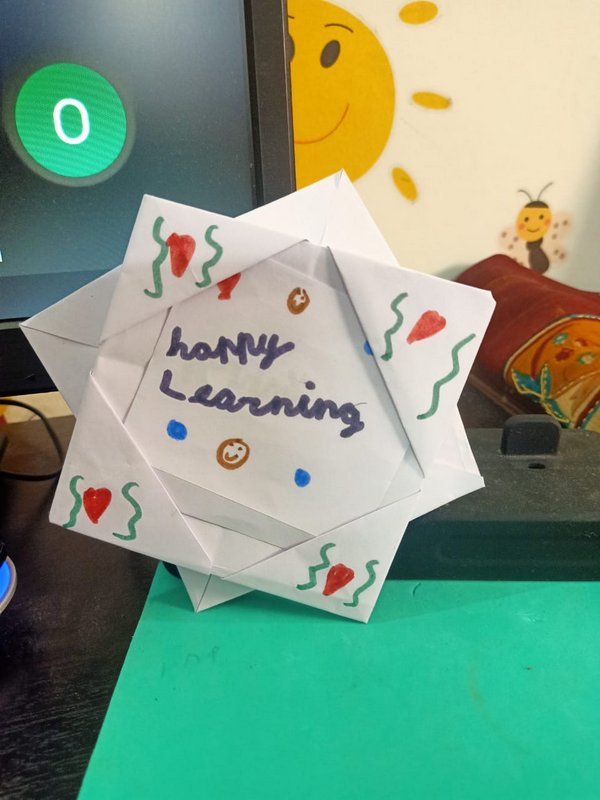 O
happy
Learning